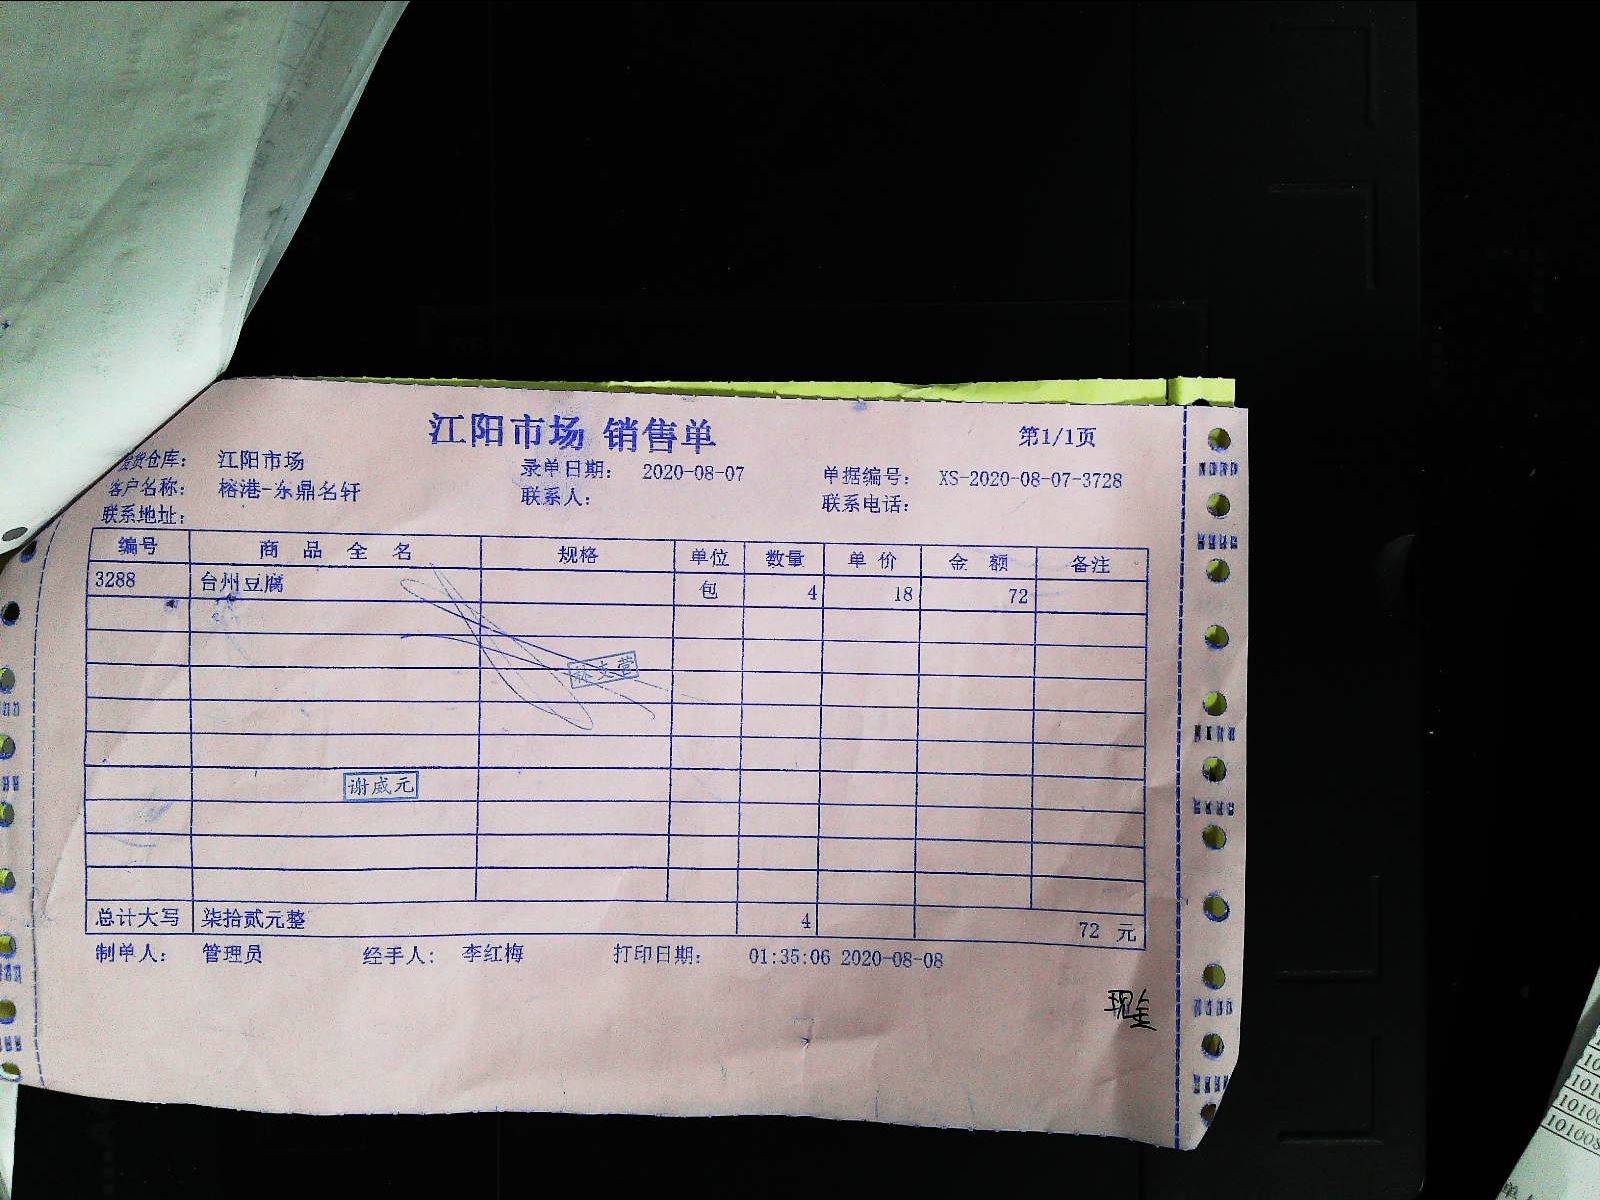 江阳市场 销售单
第1/1页
发货仓库： 江阳市场 录单日期： 2020-08-07 单据编号： XS-2020-08-07-3728
客户名称： 榕港-东鼎名轩 联系人： 联系电话：
联系地址：
编号 商品全名 规格 单位 数量 单价 金额 备注
3288 台州豆腐 包 4 18 72
谢威元
总计大写 柒拾贰元整 4 72 元
制单人： 管理员 经手人： 李红梅 打印日期： 01:35:06 2020-08-08
现金